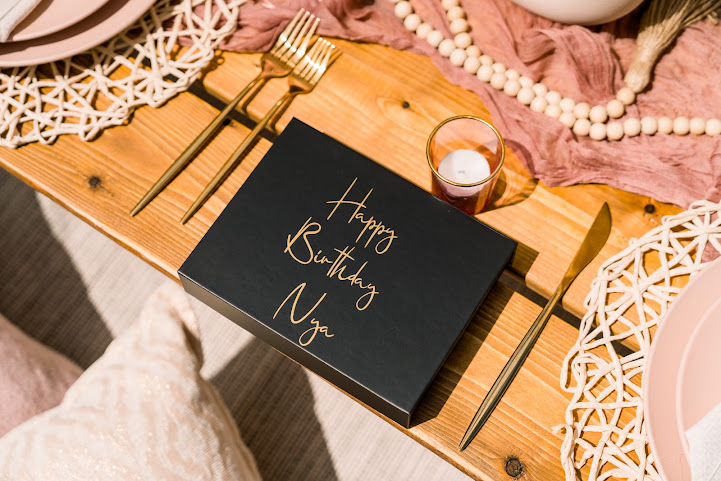 Happy
Birthday
Nya